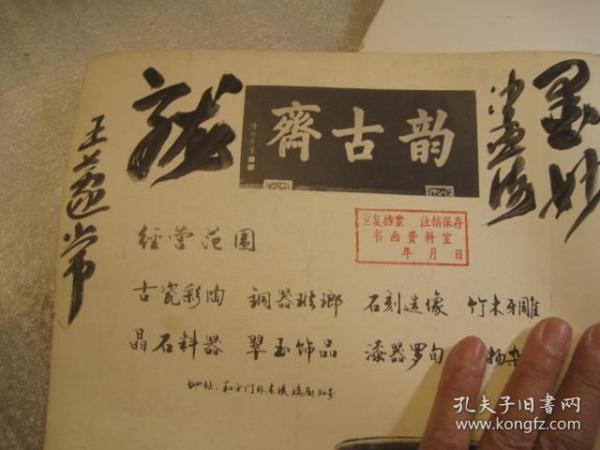 韵古齋
墨妙
沙孟海
王蘧常
重复档案 注销保存
书画资料室
年 月 日
经营范围
古瓷彩陶 铜器珐瑯 石刻造像 竹木牙雕
晶石料器 翠玉饰品 漆器罗甸 物杂
地址：和平门外东琉璃厂
孔夫子旧书网
www.kongfz.com